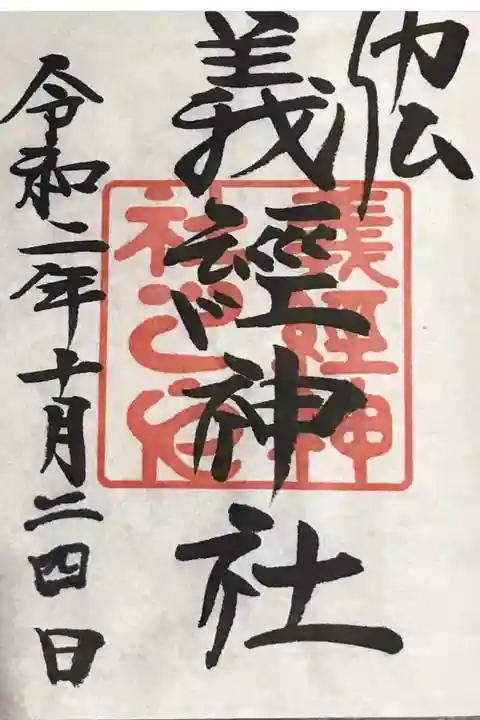 義經神社
義經神
社之印
令和二年十月二四日